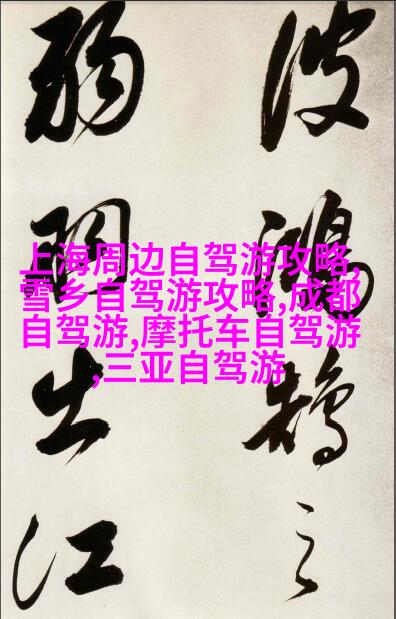 上海周边自驾游攻略,
雪乡自驾游攻略,成都
自驾游,摩托车自驾游
,三亚自驾游
波鴻鵠之
弱出江